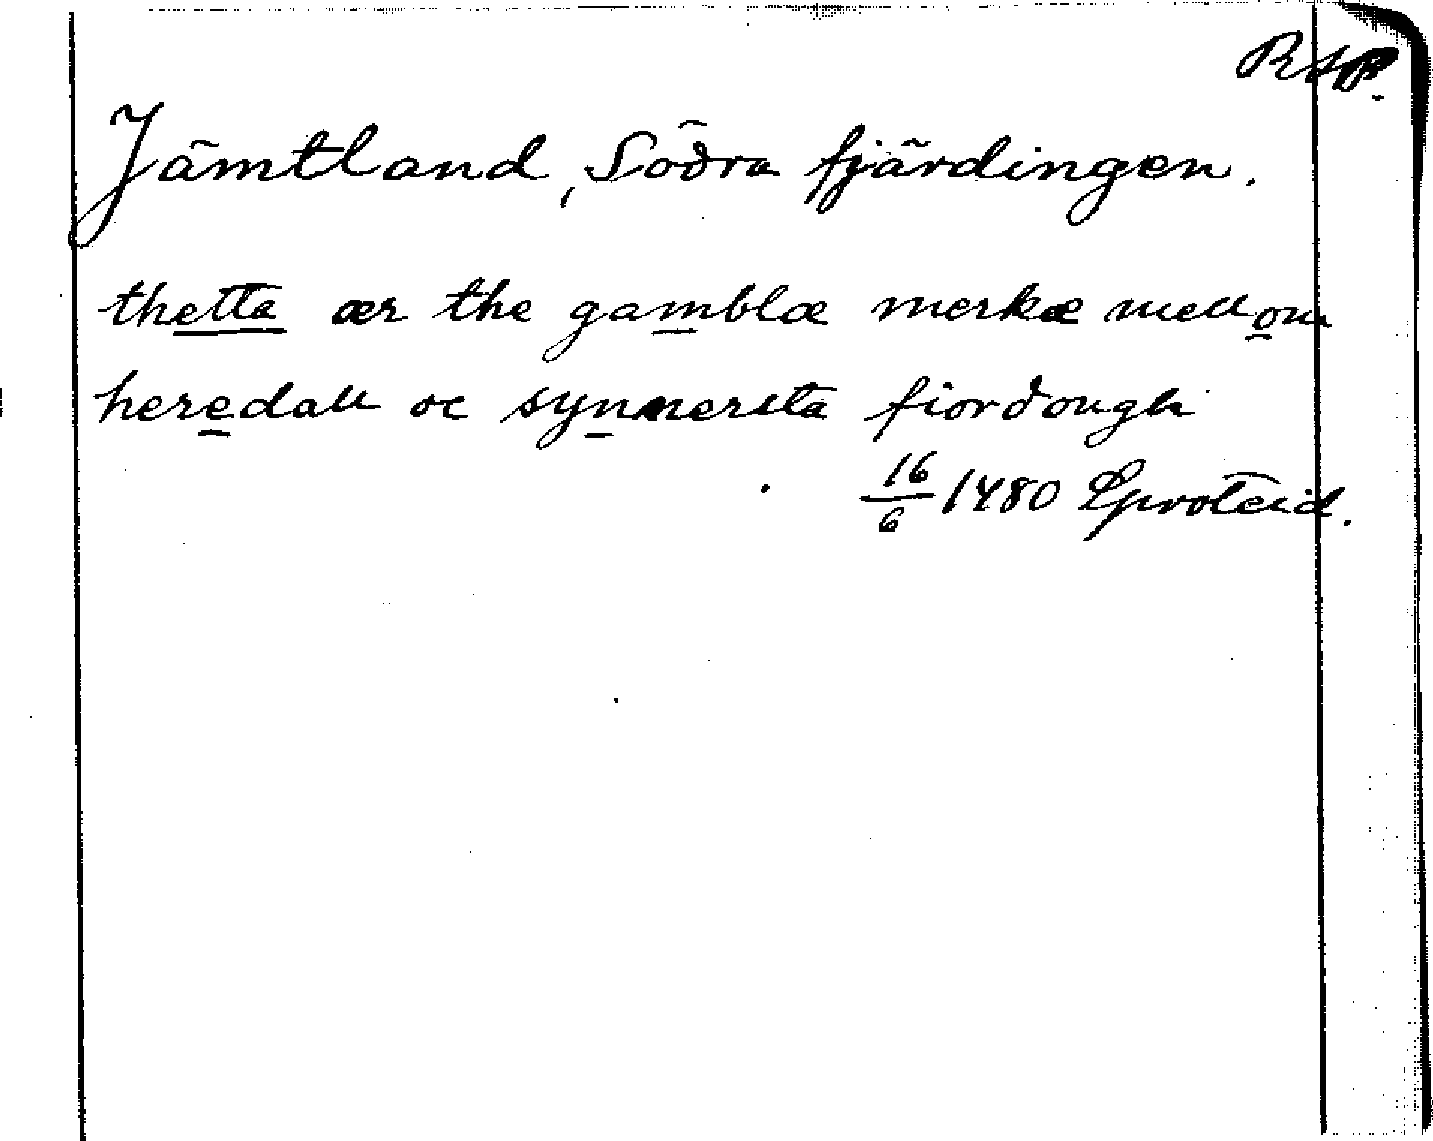 RAP.
Jämtland, Södra fjärdingen.
thetta ær the gamblæ merkæ mellom
heredall oc synnersta fiordough
16/6 1480 Sproteid.